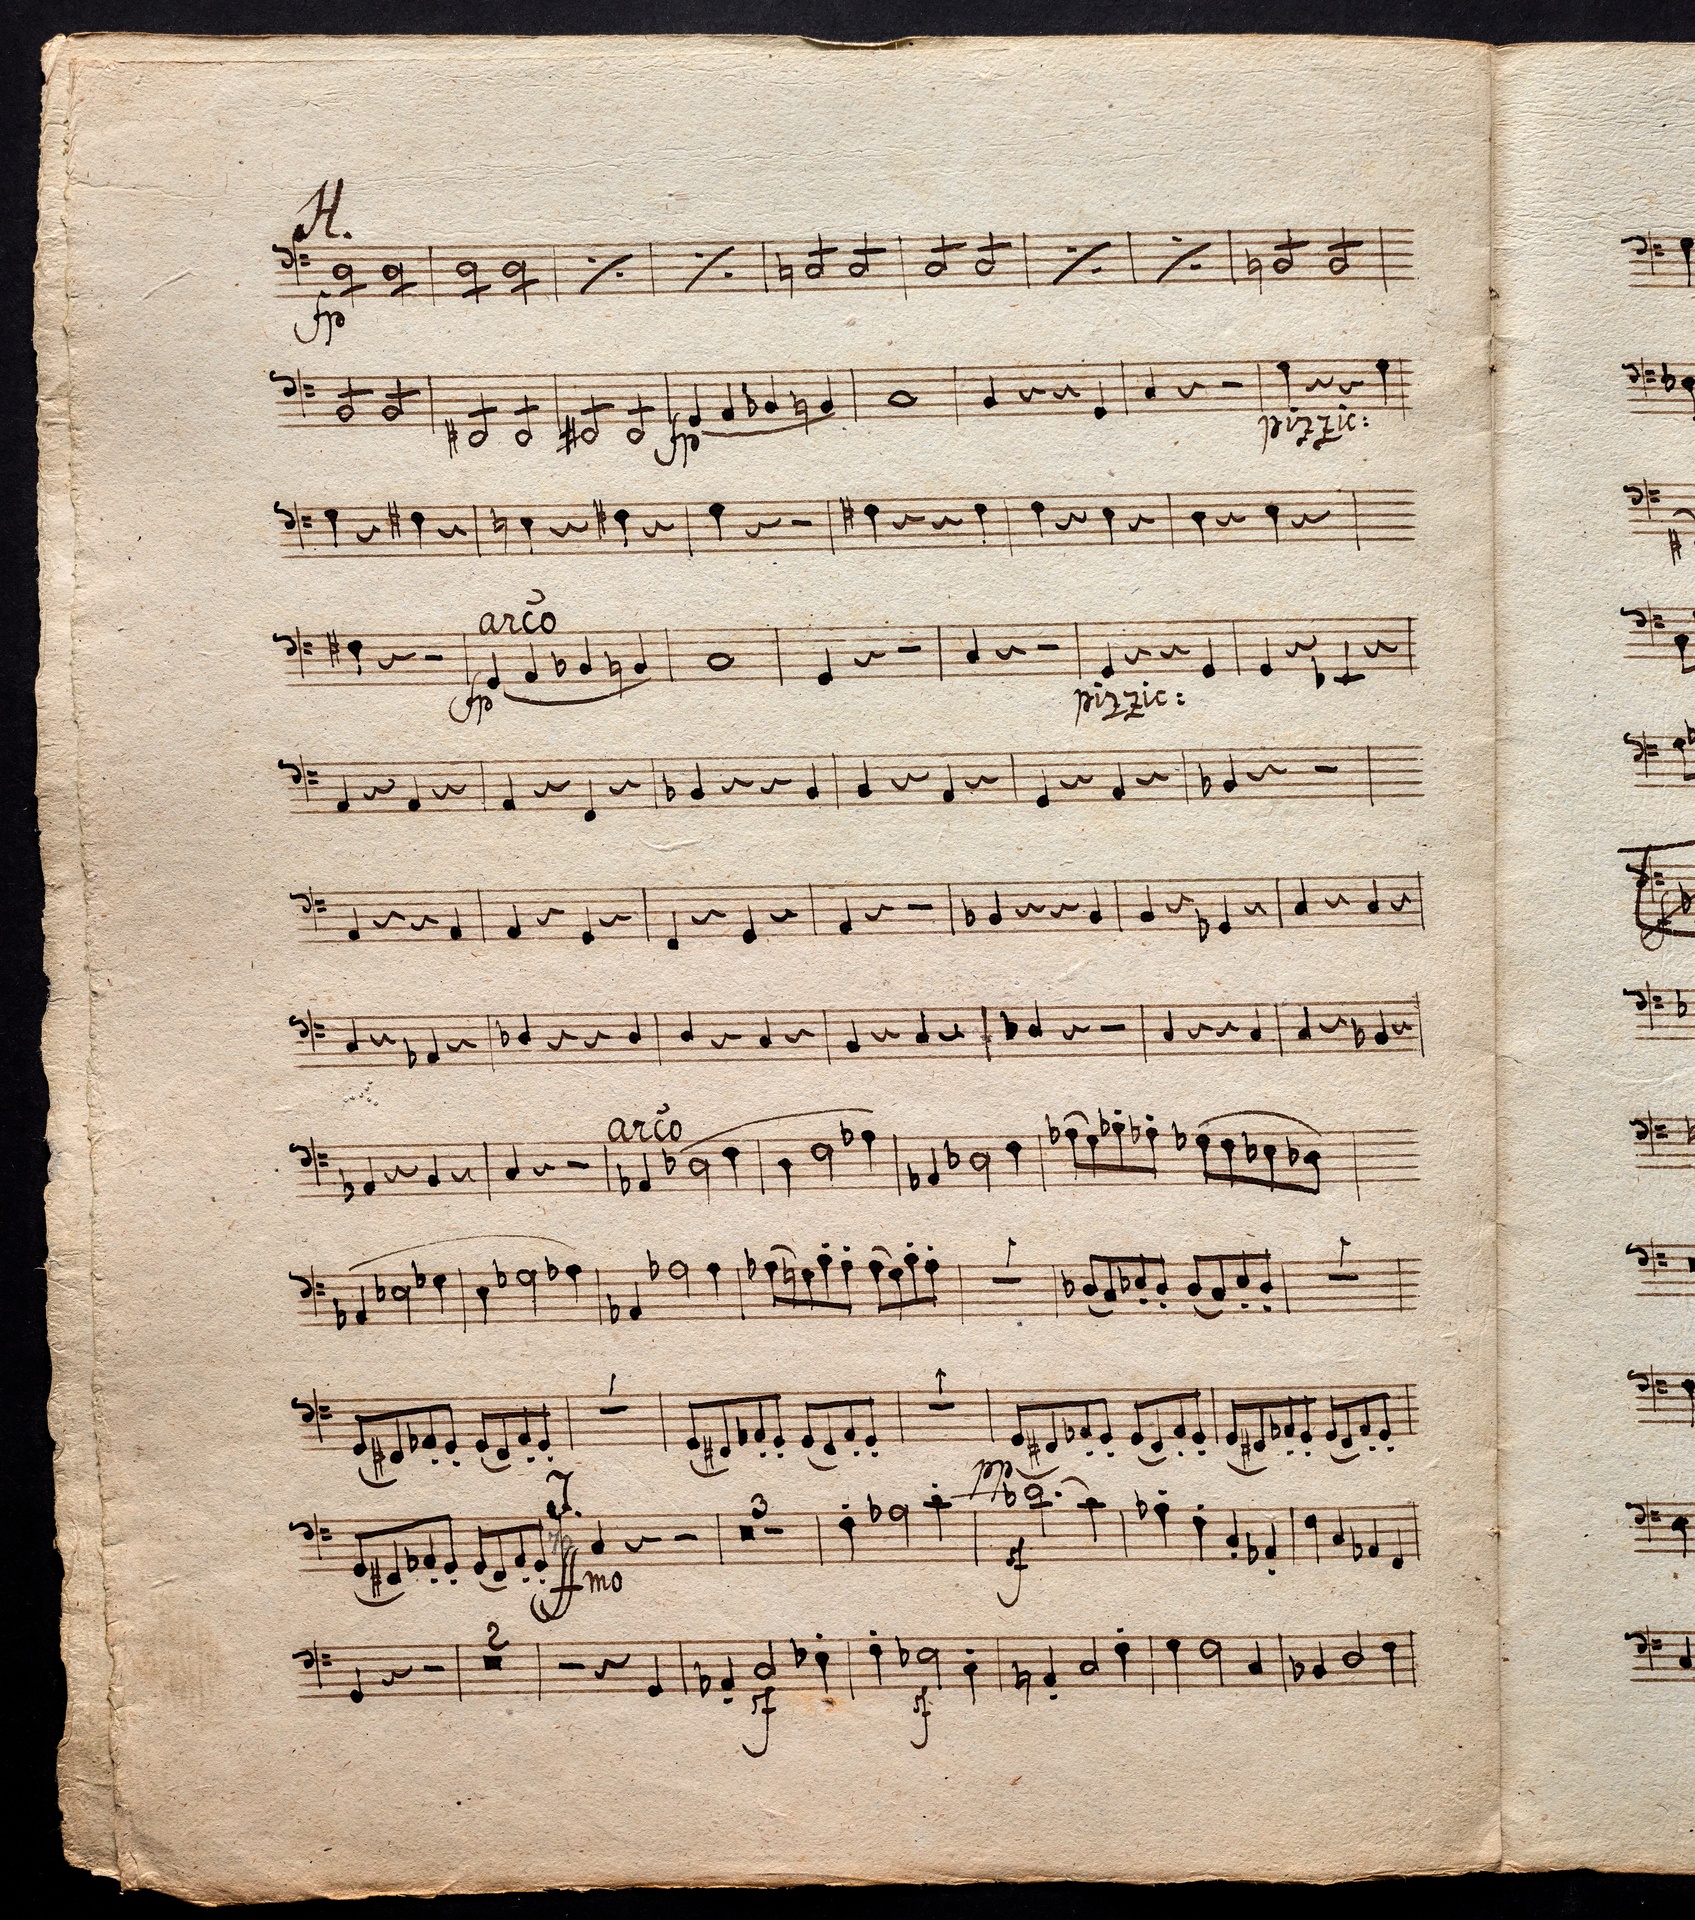 H.
fp
fp
pizzic:
arco
fp
pizzic:
arco
1
1
1
1
J.
3
ffmo
sf
2
sf
sf